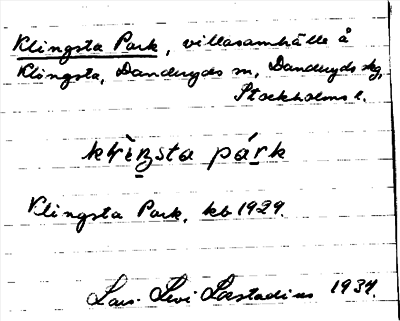 Klingsta Park, villasamhälle å
Klingsta, Danderyds sn, Danderyds skg,
Stockholms l.
klìŋsta párk
Klingsta Park, kb 1929.
Lars-Levi Læstadius 1934.